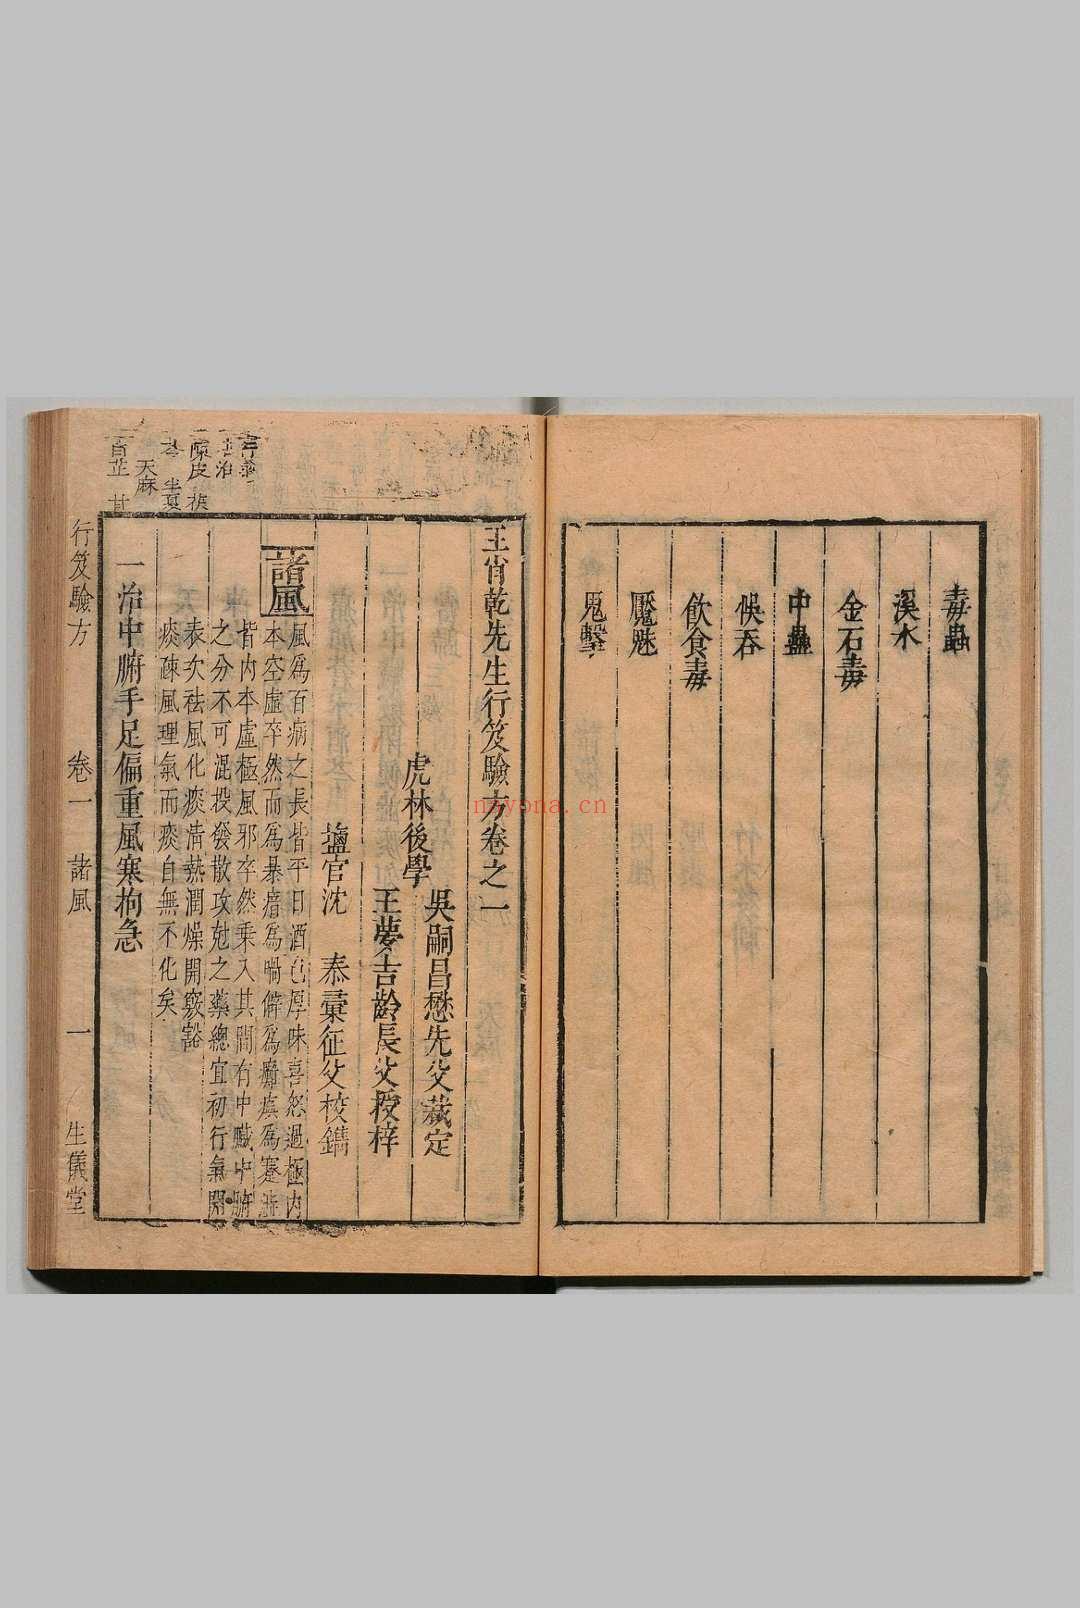 毒蟲
溪水
金石毒
中蠱
悞吞
飲食毒
魘魅
鬼擊
王肯乾先生行笈驗方卷之一
吳嗣昌懋先父裁定
虎林後學
王夢吉齡長父授梓
鹽官沈 泰彚征父校鐫
諸風
風爲百病之長皆平日酒色厚味喜怒過極内
本空虛卒然而爲暴瘖爲喎僻爲癱瘓爲蹇
皆内本虛極風邪卒然乘入其間有中臟中腑
之分不可混投發散攻尅之藥總宜初行氣開
表次祛風化痰清熱潤燥開竅豁
痰疎風理氣而痰自無不化矣
一治中腑手足偏重風寒拘急
陳皮
天麻
白芷 甘
行笈驗方 卷一 諸風 一 生儀堂
nayona.cn